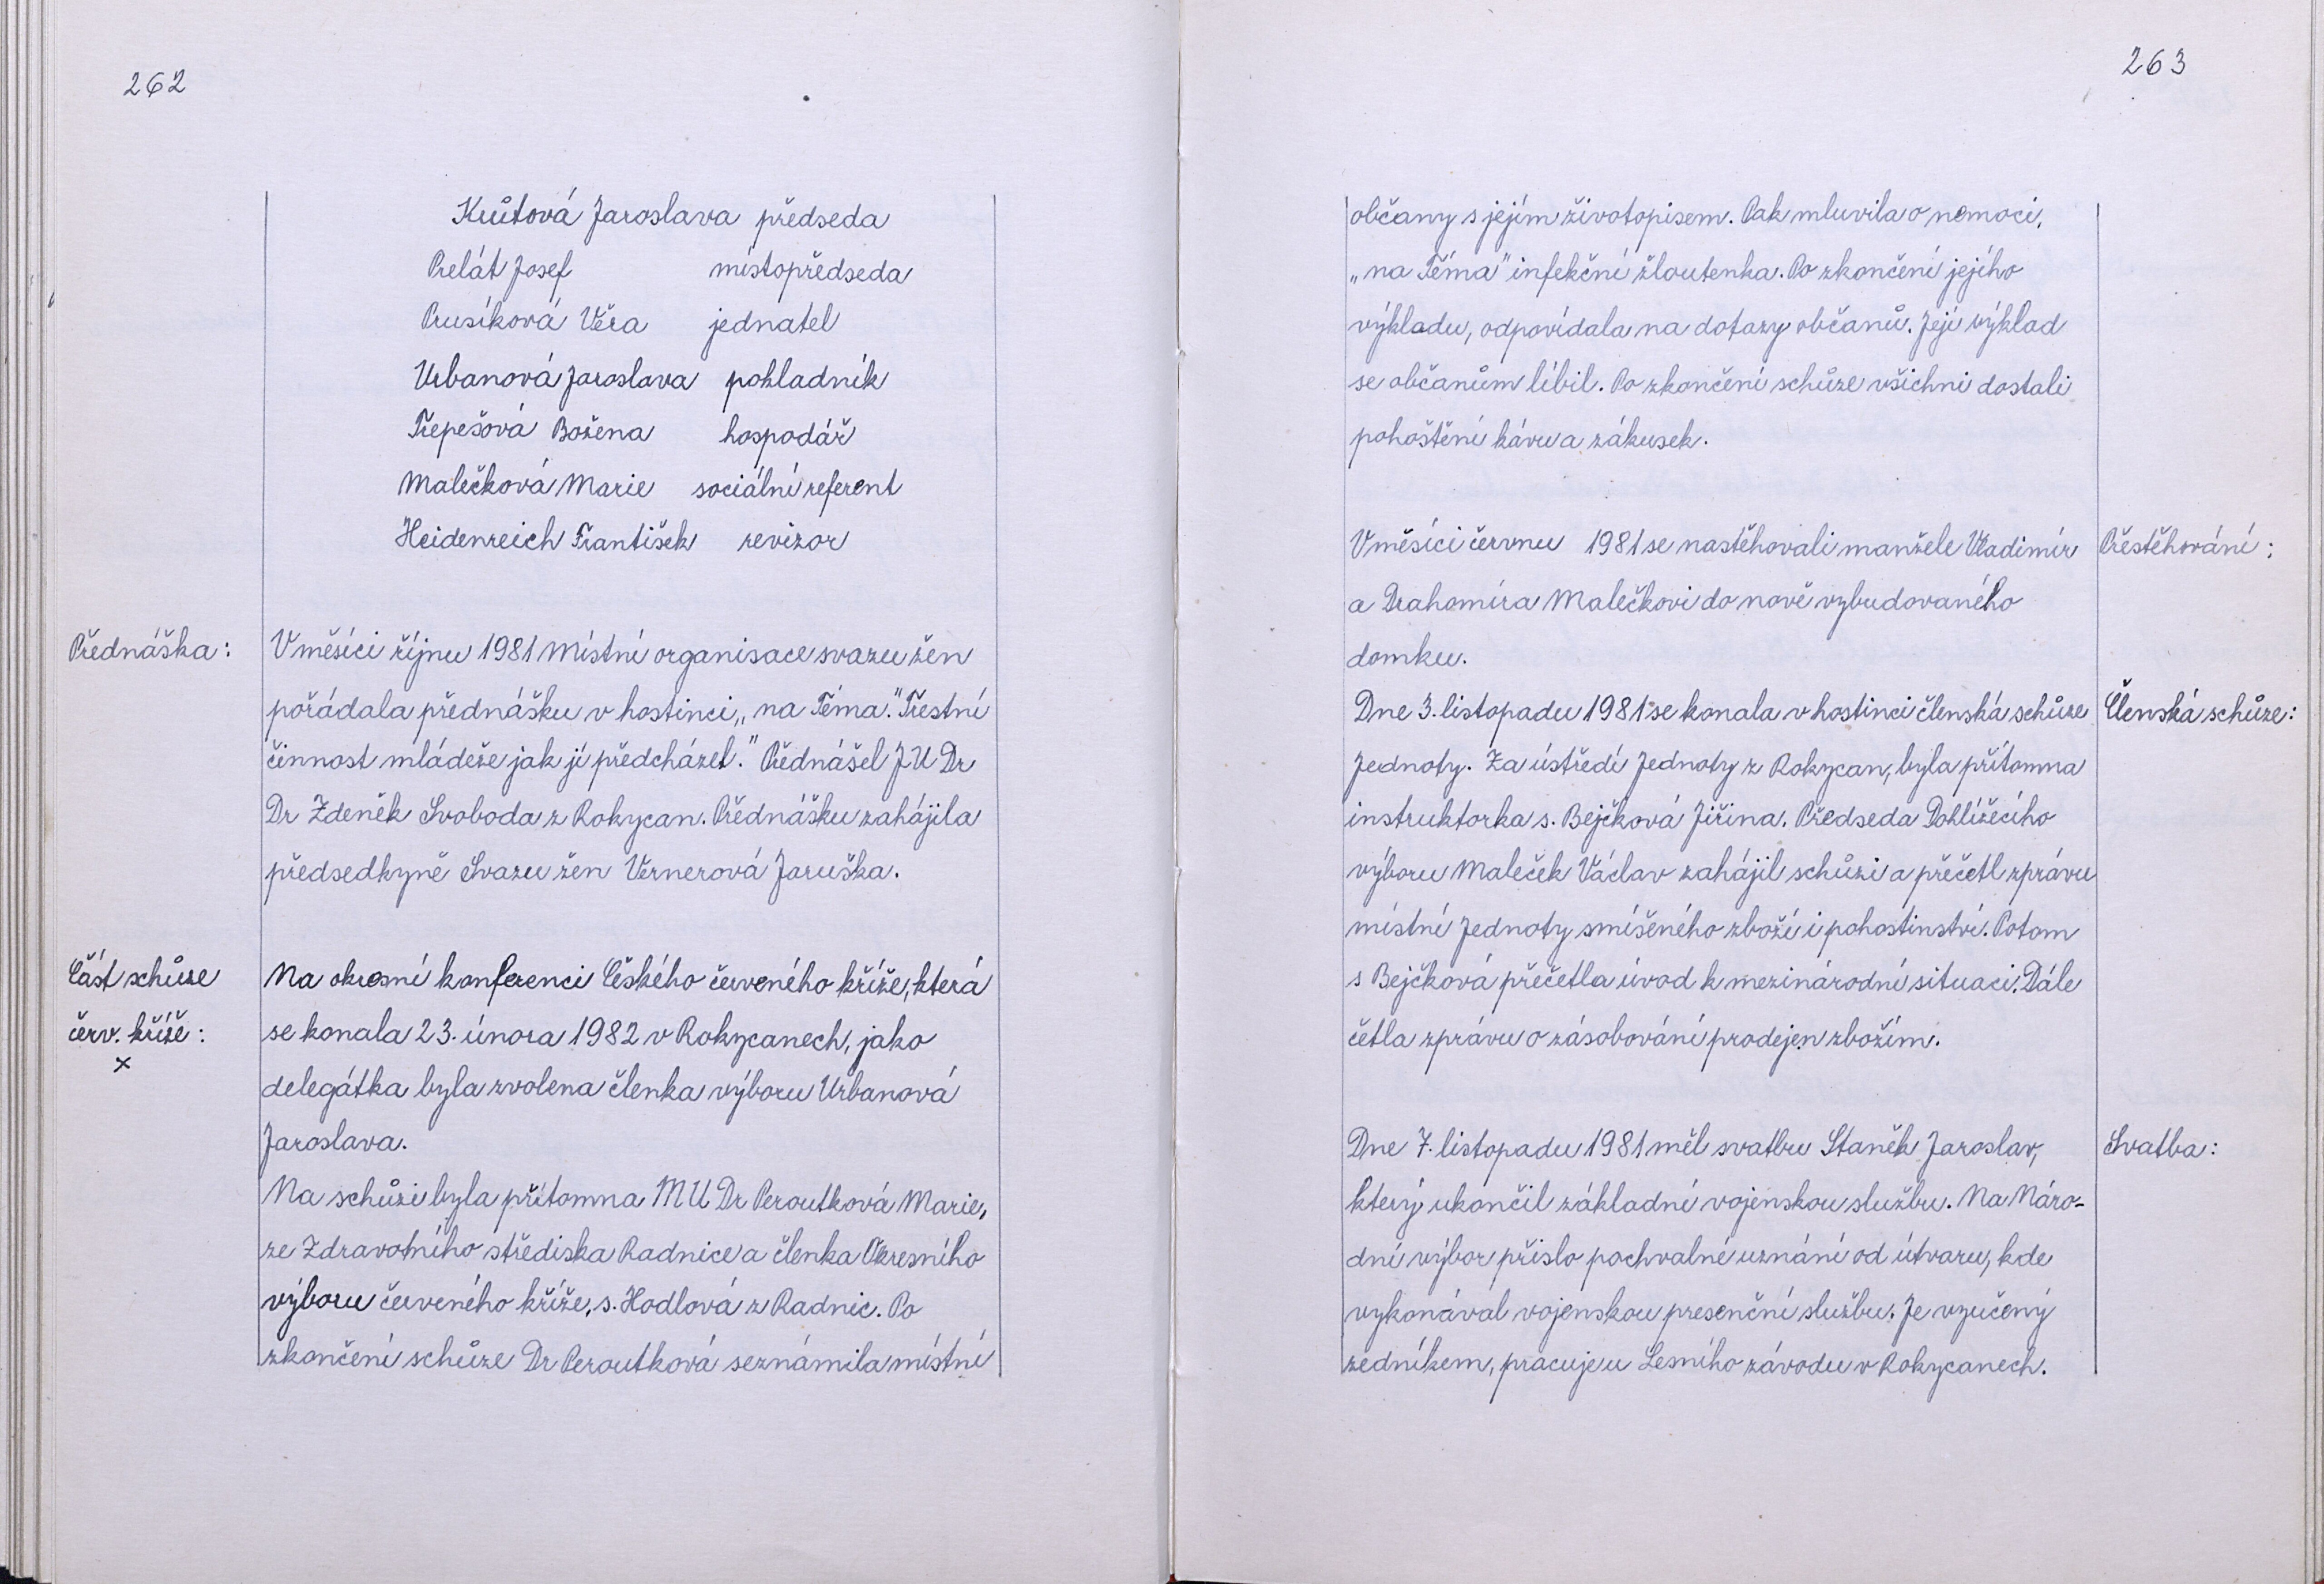 262
Krůtová Jaroslava předseda
Prelát Josef místopředseda
Prusíková Věra jednatel
Urbanová Jaroslava pokladník
Třepešová Božena hospodář
Malečková Marie sociální referent
Heidenreich František revizor
Přednáška:
V měsíci říjnu 1981 Místní organisace svazu žen
pořádala přednášku v hostinci „na Téma." Trestní
činnost mládeže jak jí předcházet." Přednášel J U Dr
Dr Zdeněk Svoboda z Rokycan. Přednášku zahájila
předsedkyně Svazu žen Vernerová Jaruška.
Část schůze
červ. kříže:
x
Na okresní konferenci Českého červeného kříže, která
se konala 23. února 1982 v Rokycanech, jako
delegátka byla zvolena členka výboru Urbanová
Jaroslava.
Na schůzi byla přítomna M U Dr Peroutková Marie,
ze Zdravotního střediska Radnice a členka Okresního
výboru červeného kříže, s. Hodlová z Radnic. Po
zkončení schůze Dr Peroutková seznámila místní
263
občany s jejím životopisem. Pak mluvila o nemoci,
„na Téma" infekční žloutenka. Po zkončení jejího
výkladu, odpovídala na dotazy občanů. Její výklad
se občanům líbil. Po zkončení schůze všichni dostali
pohoštění kávu a zákusek.
V měsíci červnu 1981 se nastěhovali manželé Vladimír
a Drahomíra Malečkovi do nově vybudovaného
domku.
Přestěhování:
Dne 3. listopadu 1981 se konala v hostinci členská schůze
Jednoty. Za ústředí Jednoty z Rokycan, byla přítomna
instruktorka s. Bejčková Jiřina. Předseda Dohlížecího
výboru Maleček Václav zahájil schůzi a přečetl zprávu
místní Jednoty smíšeného zboží i pohostinství. Potom
s Bejčková přečetla úvod k mezinárodní situaci. Dále
četla zprávu o zásobování prodejen zbožím.
Členská schůze:
Dne 7. listopadu 1981 měl svatbu Staněk Jaroslav,
který ukončil základní vojenskou službu. Na Náro-
dní výbor přišlo pochvalné uznání od útvaru, kde
vykonával vojenskou presenční službu. Je vyučený
zedníkem, pracuje u Lesního závodu v Rokycanech.
Svatba: